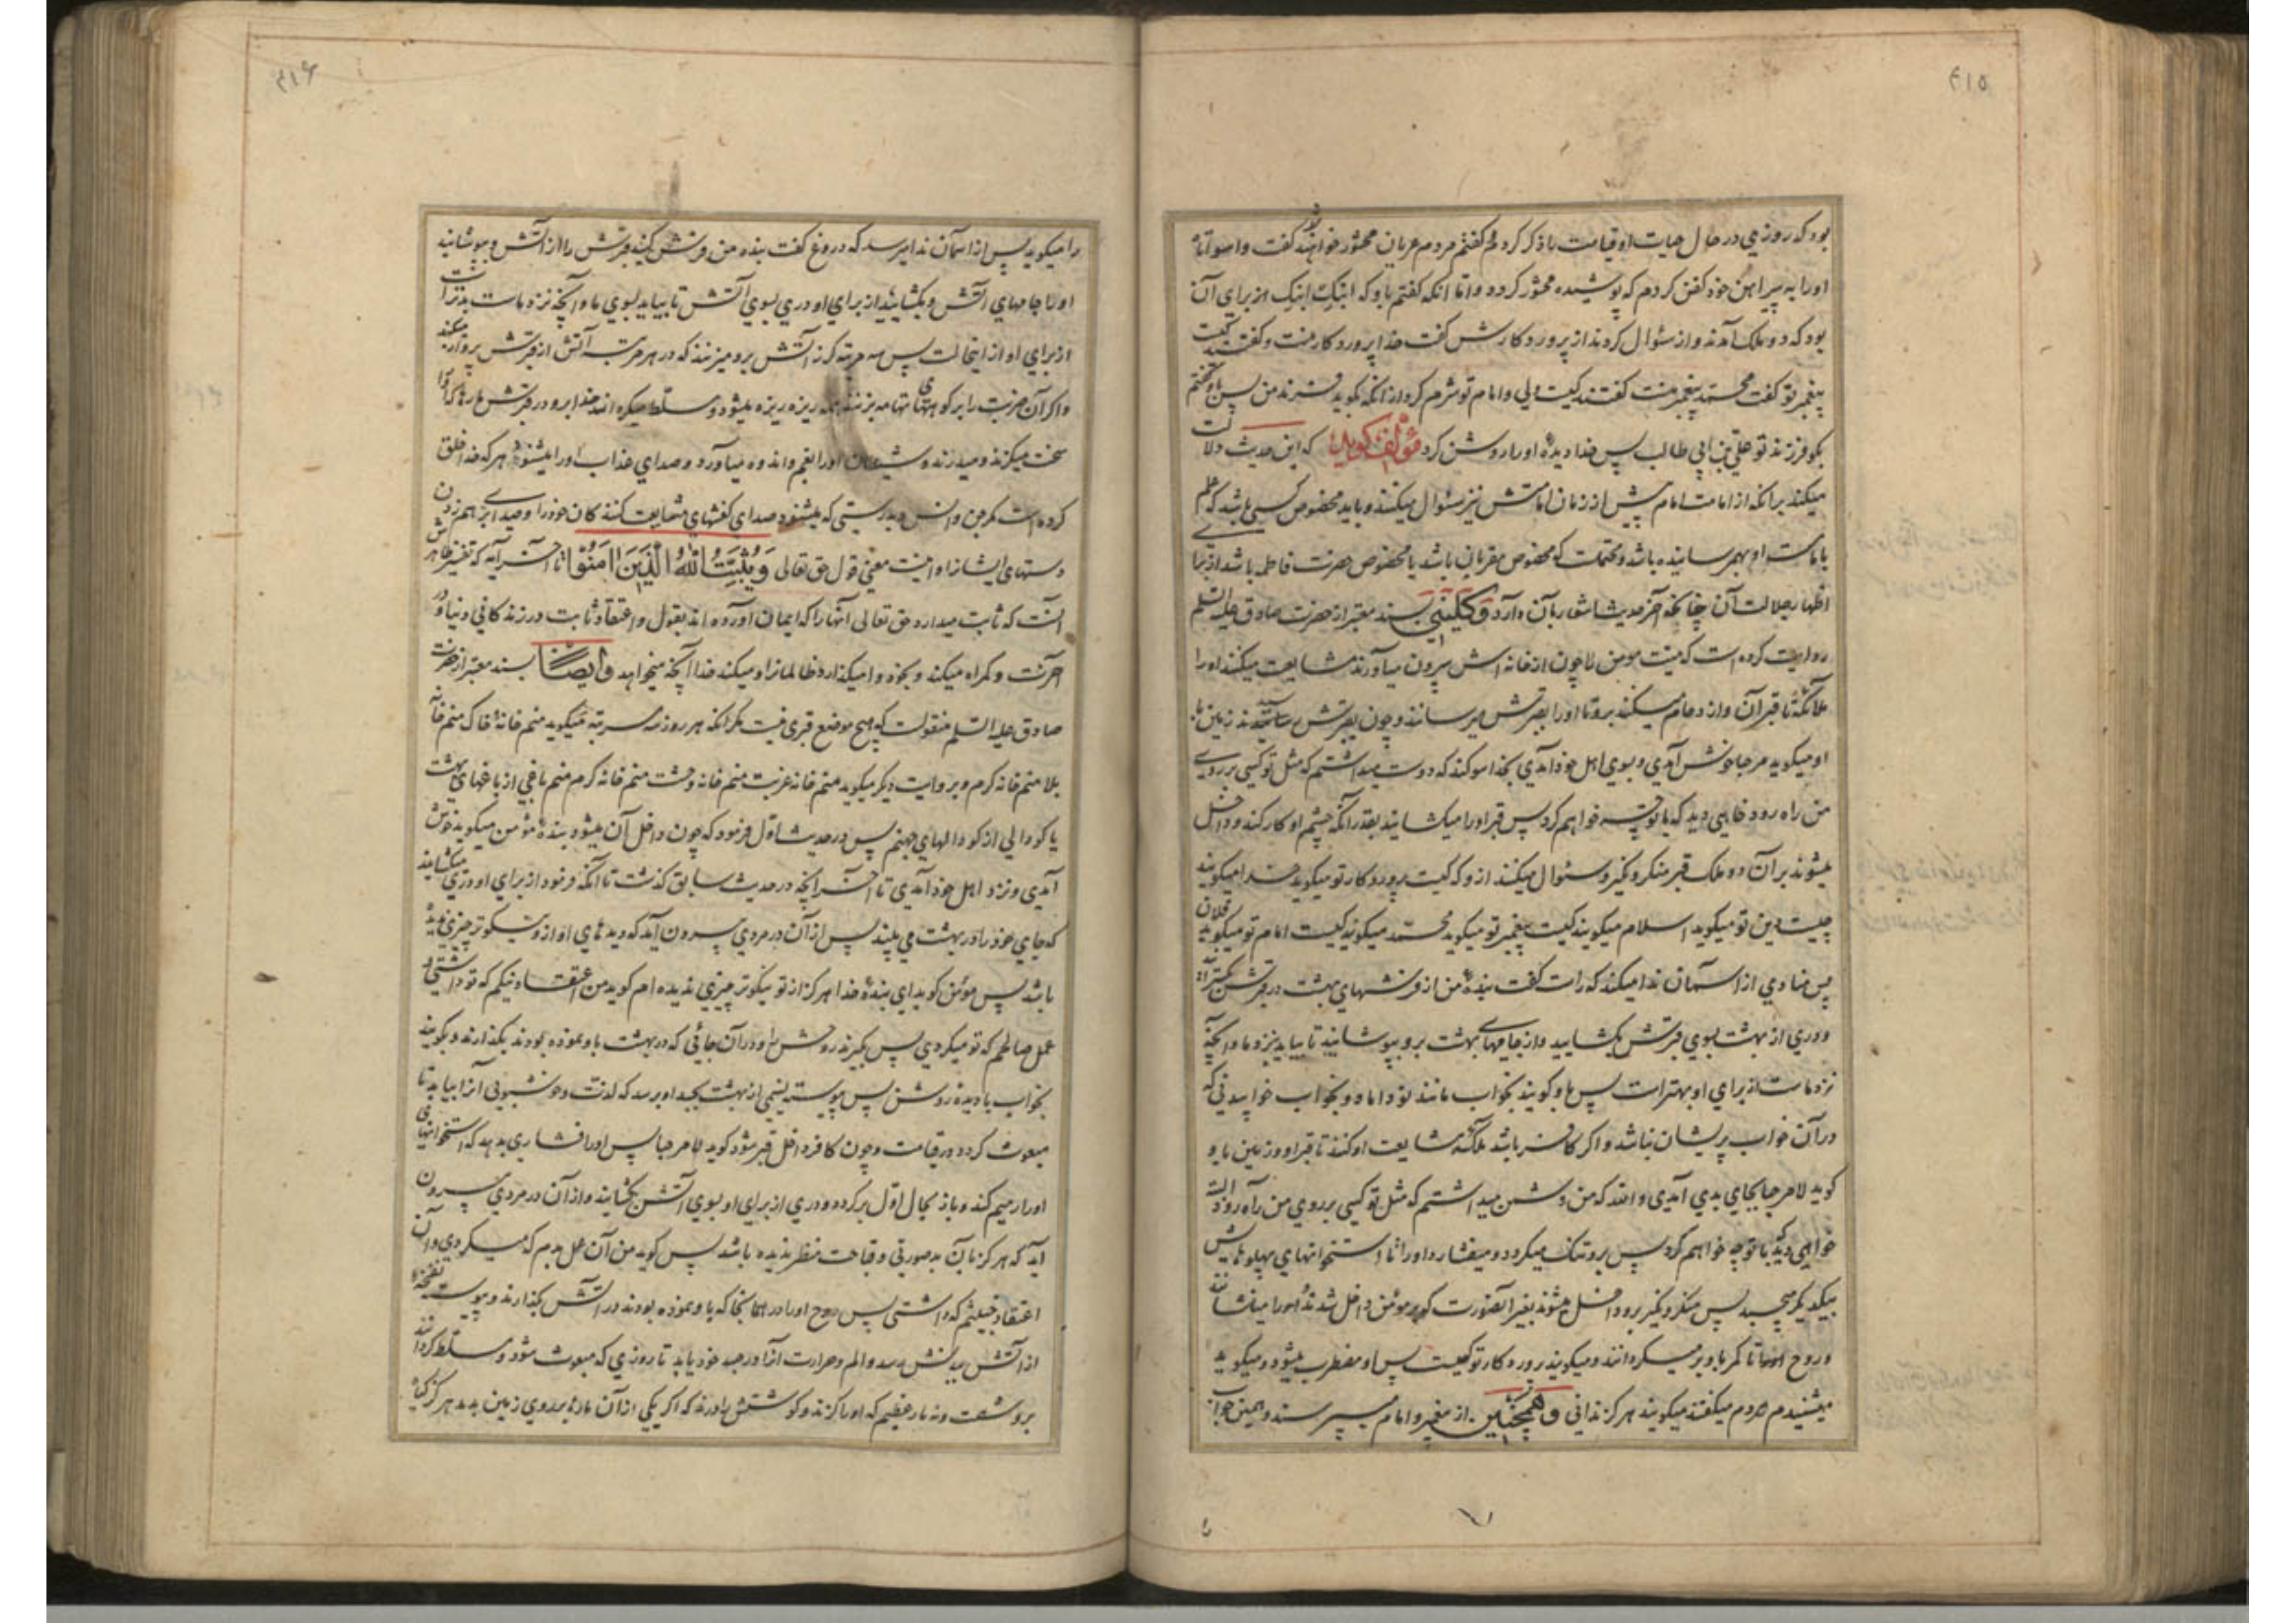 ۴۱۵
بود که روزی در حال حیات او قیامت را ذکر کردم و گفتم مردم عریان محشور خواهند شد گفت واسوأتاه
او را به پیراهن خود کفن کردم که پوشیده محشور گردد و اما آنکه گفتم باو که ابنک ابنک از برای آن
بود که دو ملک آمدند و از سئوال کردند از پروردگارش گفت خدا پروردگار منست و گفتند کیست
پیغمبر تو گفت محمد پیغمبر منست گفتند کیست ولی و امام تو شرم کرد از آنکه بگوید فرزند من پس باو گفتم
بگو فرزند تو علی بن ابی طالب پس خدا دیده او را روشن کرد مؤلف گوید که این حدیث دلالت
میکند برآنکه از امامت امام پیش از زمان امامتش نیز سئوال میکنند و باید مخصوص کسی باشد که علم
بامامت او بهم رسانیده باشد و محتملست که مخصوص مقربان باشد یا مخصوص حضرت فاطمه باشد از برای
اظهار جلالت آن چنانچه آخر حدیث اشعار بآن دارد و کلینی بسند معتبر از حضرت صادق علیه السلم
روایت کرده است که میت مومن را چون از خانه اش بیرون میآورند مشایعت میکنند او را
ملائکه تا قبر آن و ازدحام میکنند برو تا او را بقبرش میرسانند و چون بقبرش رسانیدند زمین با
او میگوید مرحبا خوش آمدی و بسوی اهل خود آمدی بخدا سوگند که دوست میداشتم که مثل تو کسی بر روی
من راه رود خواهی دید که با تو چه خواهم کرد پس قبر او را میگشایند بقدر آنکه چشم او کار کند و داخل
میشوند بر آن دو ملک قبر منکر و نکیر و سئوال میکنند از و که کیست پروردگار تو میگوید خدا میگویند
چیست دین تو میگوید اسلام میگویند کیست پیغمبر تو میگوید محمد میگویند کیست امام تو میگوید فلان
پس منادی از آسمان ندا میکند که راست گفت بنده من از فرشهای بهشت در قبرش بگسترانید
و دری از بهشت بسوی قبرش بگشایید و از جامهای بهشت برو بپوشانید تا بیاید بنزد ما و آنچه
نزد ماست از برای او بهتر است پس باو گویند بخواب مانند نو داماد و بخواب خوابیدنی که
در آن خواب پریشان نباشد و اگر کافر باشد ملائکه مشایعت او کنند تا قبر او و زمین باو
گوید لا مرحبا بجای بدی آمدی و الله که من دشمن میداشتم که مثل تو کسی بر روی من راه رود البته
خواهی دید با تو چه خواهم کرد پس برو تنگ میگردد و میفشارد او را تا استخوانهای پهلوهایش
بیکدیگر میچسبد پس منکر و نکیر برو داخل میشوند بغیر آنصورت که بر مومن داخل شدند او را مینشانند
و روح او را تا کمر باو بر میگردانند و میگویند پروردگار تو کیست پس او مضطرب میشود و میگوید
میشنیدم مردم میگفتند میگویند هرگز ندانی و همچنین از پیغمبر و امام میپرسند و همین جواب
۴۱۶
را میگوید پس از آسمان ندا میرسد که دروغ گفت بنده من فرش کنید قبرش را از آتش و بپوشانید
او را جامهای آتش و بگشایید از برای او دری بسوی آتش تا بیاید بسوی ما و آنچه نزد ماست بدتر است
از برای او از اینحالت پس سه مرتبه گرز آتش برو میزنند که در هر مرتبه آتش از قبرش پرواز میکند
و اگر آن ضربت را بر کوههای تهامه بزنند همه ریزه ریزه میشود و مسلط میگرداند خدا برو در قبرش مارها که او را
سخت میگزند و میدرند و شیطان او را بغم و اندوه میآورد و صدای عذاب او را میشنود هر که خدا خلق
کرده است مگر جن و انس و بدرستی که میشنود صدای کفشهای مشایعت کنندگان خود را و صدای برهم زدن
دستهای ایشانرا و اینست معنی قول حق تعالی و یثبت الله الذین امنوا تا آخر آیه که تفسیر ظاهرش
آنست که ثابت میدارد حق تعالی آنها را که ایمان آورده اند بقول و اعتقاد ثابت در زندگانی دنیا و در
آخرت و گمراه میکند و بخود وا میگذارد ظالمانرا و میکند خدا آنچه میخواهد و ایضاً بسند معتبر از حضرت
صادق علیه السلم منقولست که هیچ موضع قبری نیست مگر آنکه هر روز سه مرتبه میگوید منم خانه خاک منم خانه
بلا منم خانه کرم و بروایت دیگر میگوید منم خانه غربت منم خانه وحشت منم خانه کرم منم باغی از باغهای بهشت
یا گودالی از گودالهای جهنم پس در حدیث اول فرمود که چون داخل آن میشود بنده مؤمن میگوید خوش
آمدی و نزد اهل خود آمدی تا آخر آنچه در حدیث سابق گذشت تا آنکه فرمود از برای او دری میگشایند
که جای خود را در بهشت می بیند پس از آن در مردی بیرون آید که دیدهای او از و نیکوتر چیزی ندیده
باشد پس مومن گوید ای بنده خدا هرگز از تو نیکوتر چیزی ندیده ام گوید من اعتقاد نیکم که تو داشتی و
عمل صالحم که تو میکردی پس بگیرند روحش را و در آن جائی که در بهشت باو نموده بودند بگذارند و بگویند
بخواب با دیده روشن پس پیوسته نسیمی از بهشت بجسد او برسد که لذت و خوشبویی آنرا بیابد تا
مبعوث گردد در قیامت و چون کافر داخل قبر شود گوید لا مرحبا پس او را فشاری بدهد که استخوانهای
او را رمیم کند و باز بحال اول برگردد و دری از برای او بسوی آتش بگشایند و از آن در مردی بیرون
آید که هرگز بآن بدصورتی و قباحت منظر ندیده باشد پس گوید من آن عمل بدم که میکردی و آن
اعتقاد خبیثم که داشتی پس روح او را در همانجا که باو نموده بودند در آتش بگذارند و پیوسته نفخه
از آتش ببدنش رسد و الم و حرارت آنرا در جسد خود یابد تا روزی که مبعوث شود و مسلط گردانند
برو شصت و نه مار عظیم که او را گزند و گوشتش را درند که اگر یکی از آن مارها بر روی زمین بدمد هرگز گیاه